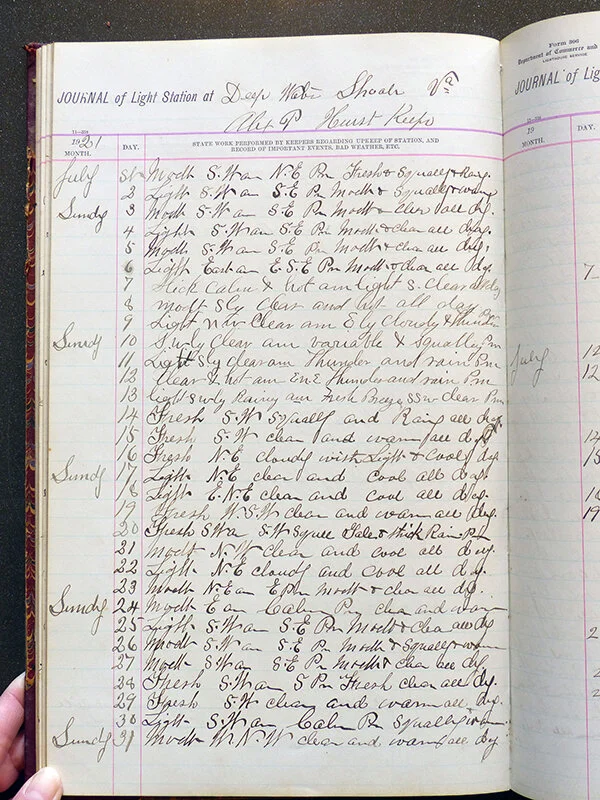 Form 306
Department of Commerce and
LIGHTHOUSE SERVICE
JOURNAL of Light Station at Deep Water Shoals Va
JOURNAL of Lig
Alex P Hurst Keeper
1921
MONTH. DAY. STATE WORK PERFORMED BY KEEPERS REGARDING UPKEEP OF STATION, AND
RECORD OF IMPORTANT EVENTS, BAD WEATHER, ETC.
19
MONTH. DAY.
July 1st Modt S.W am N.E Pm Fresh & Squally & Rain
2 Light S.W am S.E Pm Modt & Squally & warm
Sundy 3 Modt S.W am S.E Pm Modt & Clear all day.
4 Light S.W am S.E Pm Modt & clear all day.
5 Modt S.W am S.E Pm Modt & clear all day.
6 Light East am E.S.E Pm Modt & clear all day.
7 Calm & hot am light S. clear
8 modt Sly clear and hot all day
9 Light Ndy Clear am Ely Cloudy & thunder Pm
Sundy 10 S.wly Clear am variable & Squally Pm
11 Light Sly clear am Thunder and rain Pm
12 Clear & hot am ENE Thunder and rain Pm
13 light Swly Rainy am Fresh Breeze SSW clear Pm
14 Fresh S.W Squally and Rain all day.
15 Fresh S.W clear and warm all day.
16 Fresh N.E cloudy with Light & Cool day.
Sundy 17 Light N.E clear and Cool all day.
18 Light E.N.E clear and cool all day.
19 Fresh W.S.W clear and warm all day.
20 Fresh S.W am S.W Squall Gale & thick Rain Pm
21 Modt N.W Clear and cool all day.
22 Light N.E cloudy and cool all day.
23 Modt N.E am E Pm modt & clear all day.
Sundy 24 Modt E am Calm Pm clear and warm
25 Light S.W am S.E Pm Modt & clear all day
26 Modt S.W am S.E Pm Modt & Squally & warm
27 Modt S.W am S.E Pm Modt & clear all day
28 Fresh S.W am S Pm Fresh clear all day.
29 Fresh S.W clear and warm all day.
30 Light S.W am Calm Pm Squally warm
Sundy 31 Modt W.N.W clear and warm all day
7
July 12
12
14
15
16
19
2
2
2